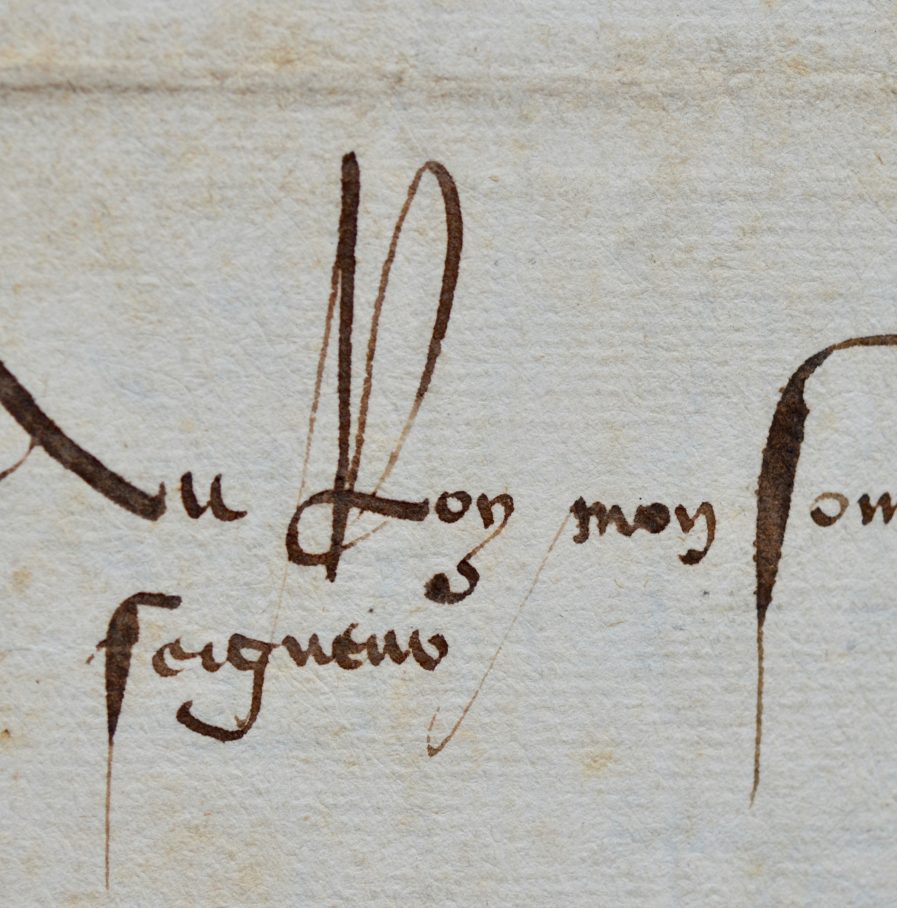 Au Roy mon som
seigneur